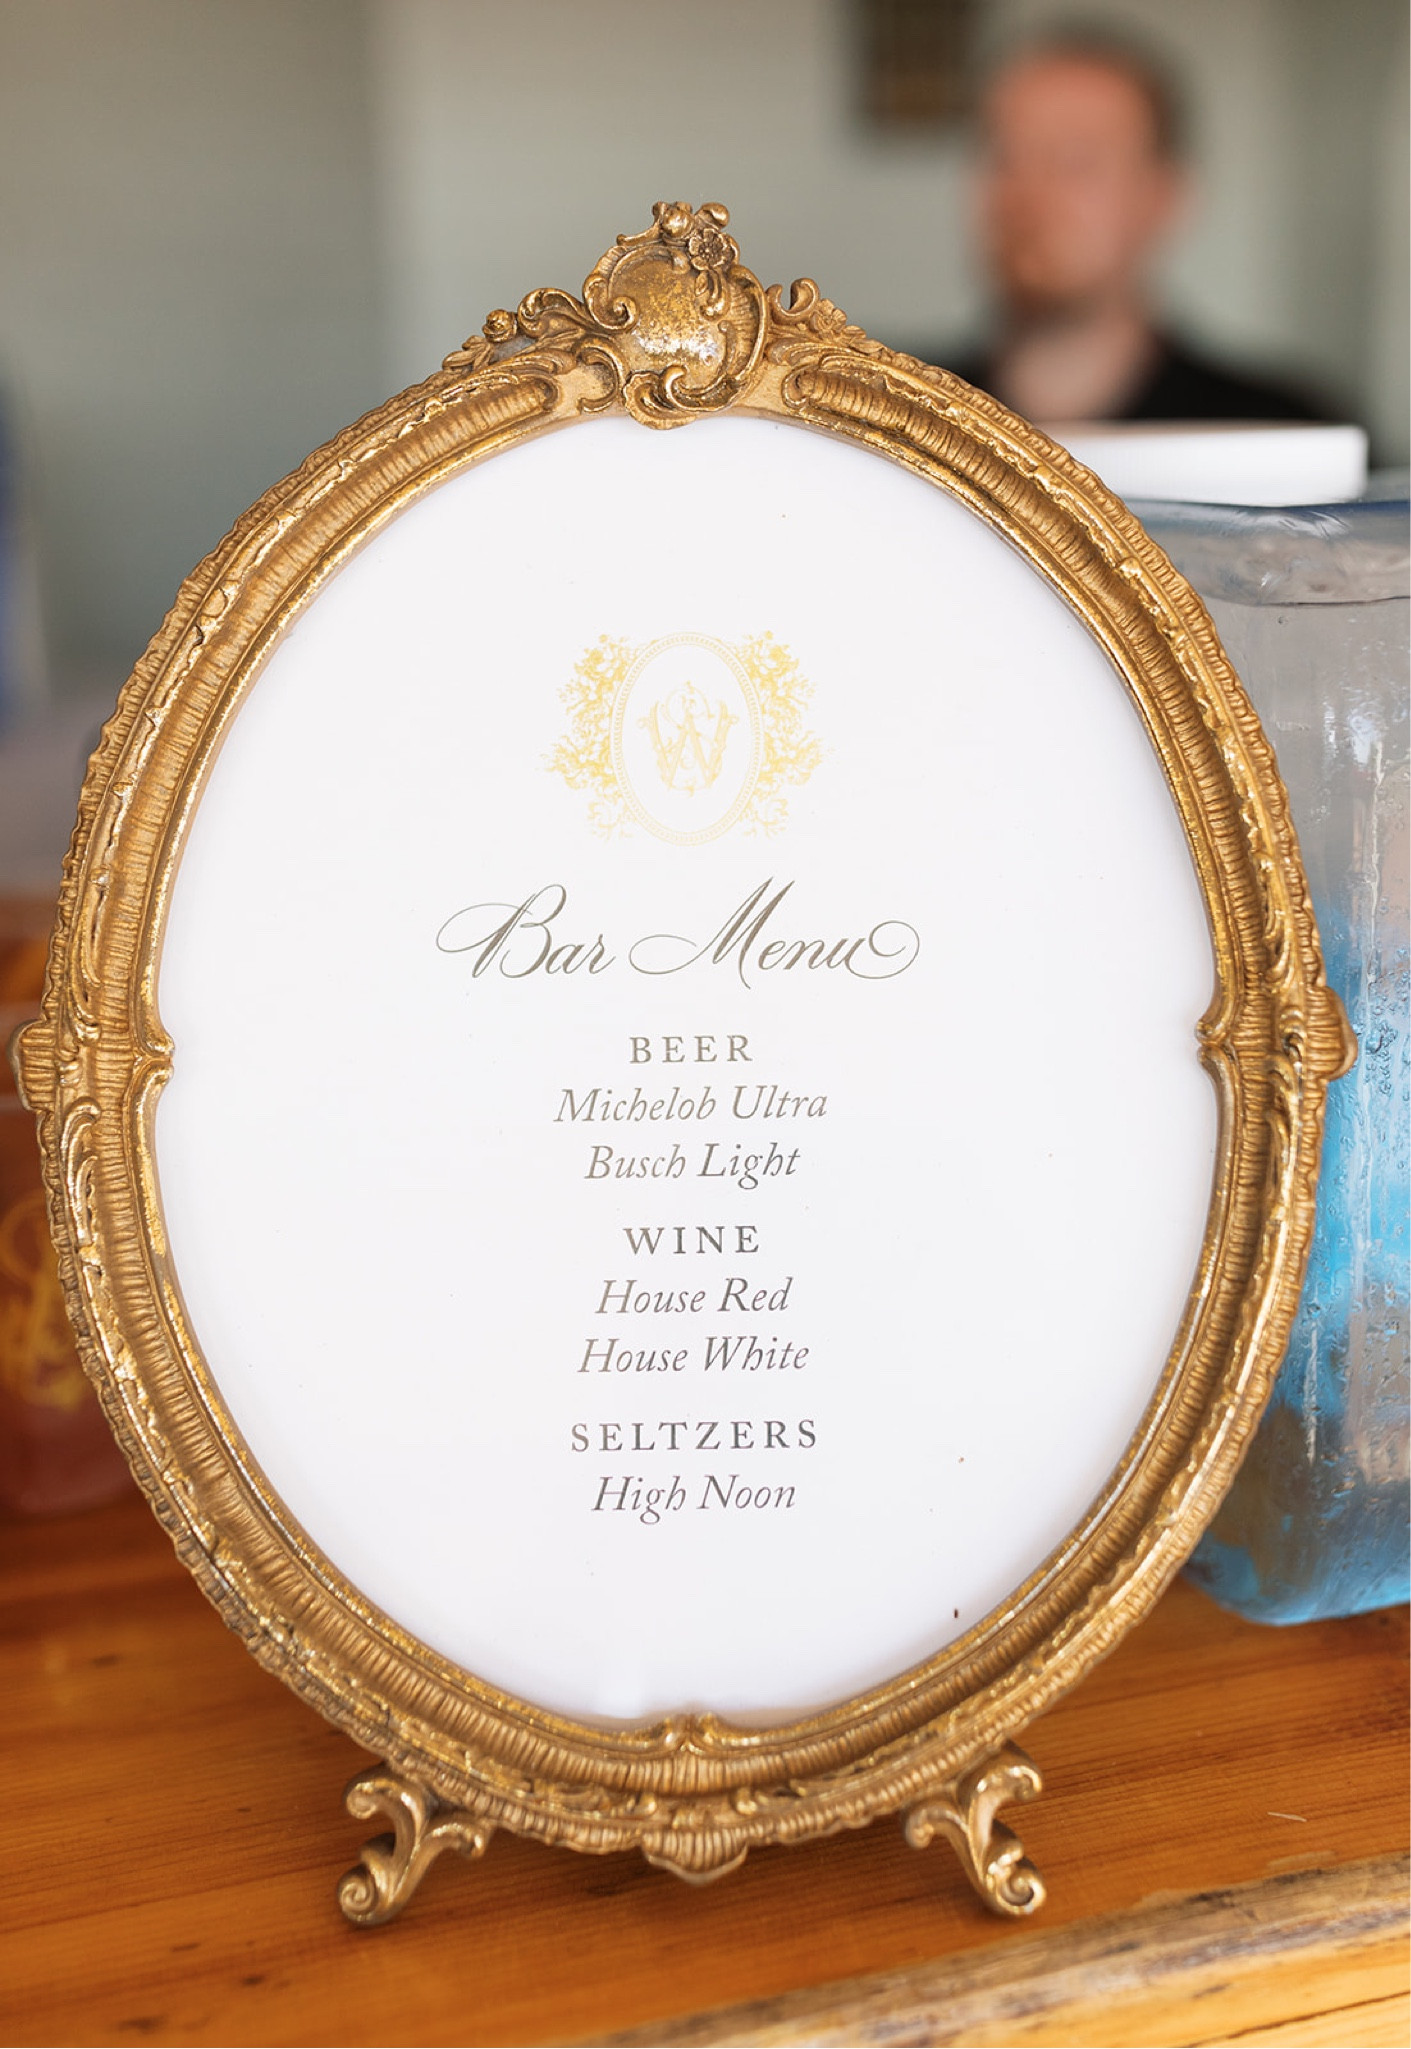 Bar Menu
BEER
Michelob Ultra
Busch Light
WINE
House Red
House White
SELTZERS
High Noon